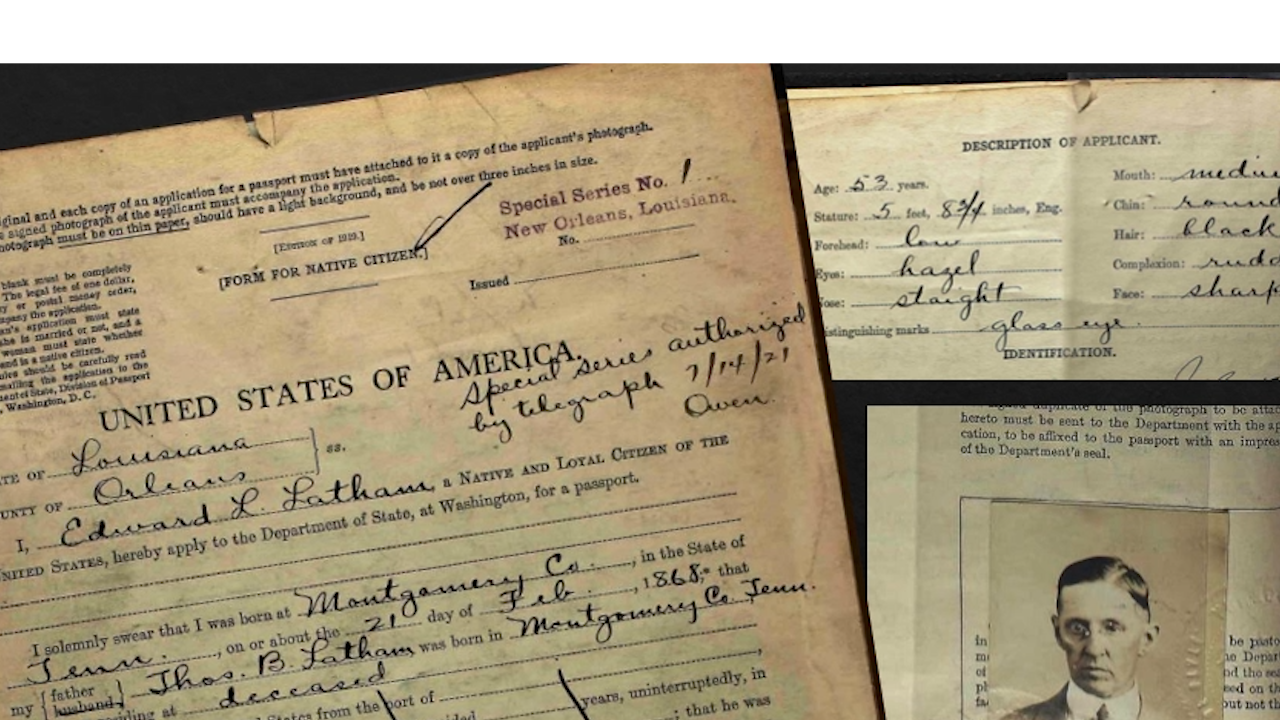 iginal and each copy of an application for a passport must have attached to it a copy of the applicant's photograph.
signed photograph of the applicant must accompany the application.
hotograph must be on thin paper, should have a light background, and be not over three inches in size.
[EDITION OF 1919.]
[FORM FOR NATIVE CITIZEN.]
Special Series No. 1
New Orleans, Louisiana.
No.
Issued
blank must be completely
The legal fee of one dollar,
or postal money order,
company the application.
an's application must state
she is married or not, and a
woman must state whether
and is a native citizen.
ules should be carefully read
mailing the application to the
ment of State, Division of Passport
Washington, D. C.
UNITED STATES OF AMERICA.
Special Series authorized
by telegraph 7/14/21
Owen.
TE OF Louisiana
UNTY OF Orleans
ss.
I, Edward L. Latham, a NATIVE AND LOYAL CITIZEN OF THE
UNITED STATES, hereby apply to the Department of State, at Washington, for a passport.
I solemnly swear that I was born at Montgomery Co., in the State of
Tenn., on or about the 21 day of Feb., 1868;* that
my { father husband } Thos. B. Latham was born in Montgomery Co. Tenn.
iding at deceased
d States from the port of
years, uninterruptedly, in
; that he was
DESCRIPTION OF APPLICANT.
Age: 53 years.
Stature: 5 feet, 8 3/4 inches, Eng.
Forehead: low
Eyes: hazel
ose: staight
istinguishing marks glass eye.
Mouth: mediu
Chin: round
Hair: black
Complexion: rudd
Face: sharp
IDENTIFICATION.
signed duplicate of the photograph to be attac
hereto must be sent to the Department with the ap
cation, to be affixed to the passport with an impres
of the Department's seal.
in
of
be paste
Depar
d the sea
ed on the
but not th